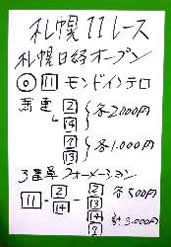 札幌11レース
札幌日経オープン
◎ 11 モンドインテロ
馬単
2
14 } 各2000円
13
7 } 各1.000円
3連単フォーメーション
11 - 2 14 - 2 14 13 7 各500円
計3.000円